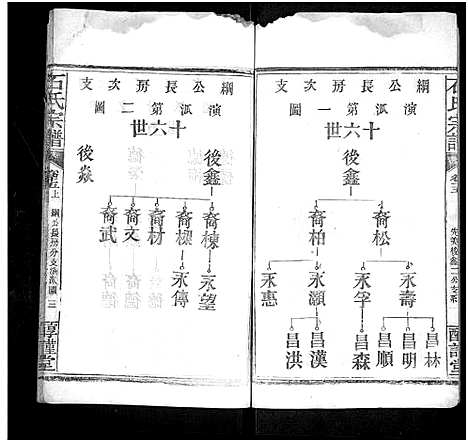 石氏宗譜
綱公長房次支
演派第一圖
十六世
後鑫
裔松
裔柏
永壽
永孚
永瀕
永惠
昌林
昌明
昌順
昌森
昌漢
昌洪
綱公長房次支
演派第二圖
十六世
後鑫
後焱
裔棟
裔樑
裔材
裔文
裔武
永望
永傳
石氏宗譜
卷三上
綱公長房分支演派圖
三
醇謹堂